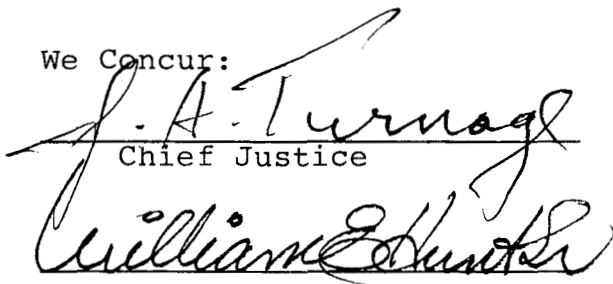 We Concur:
J. A. Turnage
Chief Justice
William E Hunt Sr